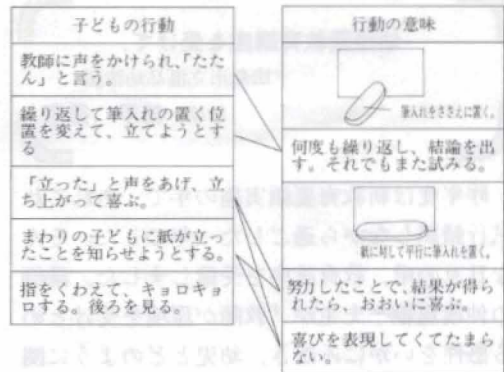 子どもの行動
教師に声をかけられ、「たた
ん」と言う。
繰り返して筆入れの置く位
置を変えて、立てようとす
る
「立った」と声をあげ、立
ち上がって喜ぶ。
まわりの子どもに紙が立っ
たことを知らせようとする。
指をくわえて、キョロキョ
ロする。後ろを見る。
行動の意味
筆入れをささえに置く。
何度も繰り返し、結論を出
す。それでもまた試みる。
紙に対して平行に筆入れを置く。
努力したことで、結果が得ら
れたら、おおいに喜ぶ。
喜びを表現してくてたまら
ない。